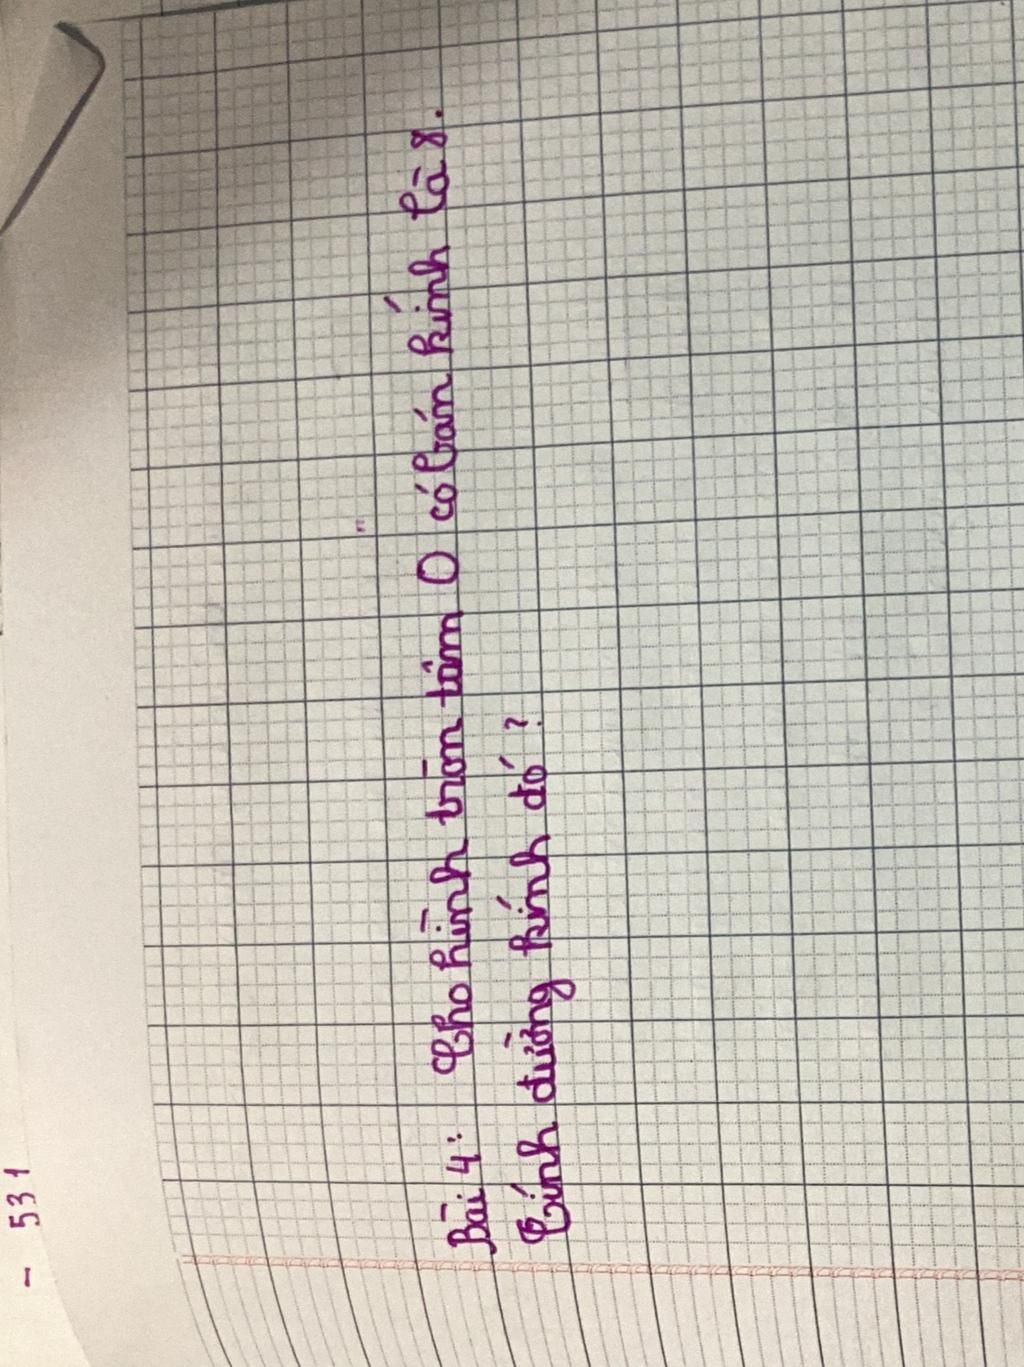 - 531
Bài 4: Cho hình tròn tâm O có bán kính là 8.
Tính đường kính đó?